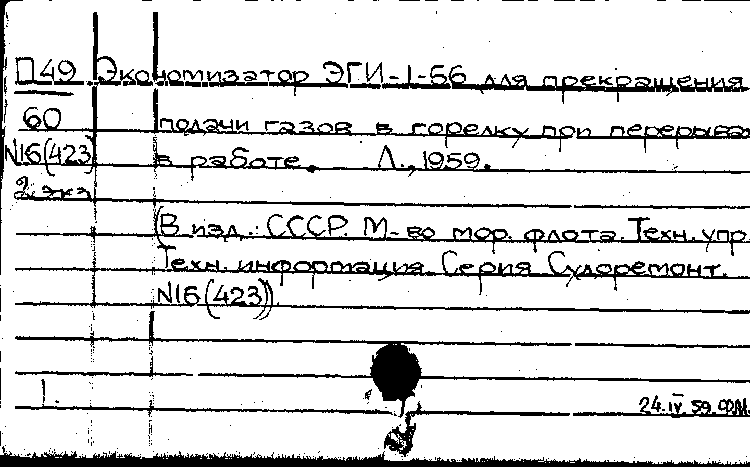 П49 Экономизатор ЭГИ-1-56 для прекращения
60 подачи газов в горелку при перерывах
N16(423) в работе. Л., 1959.
2 экз
(В изд.: СССР. М-во мор. флота. Техн. упр.
Техн. информация. Серия Судоремонт.
N16(423)).
1.
24.IV 59.